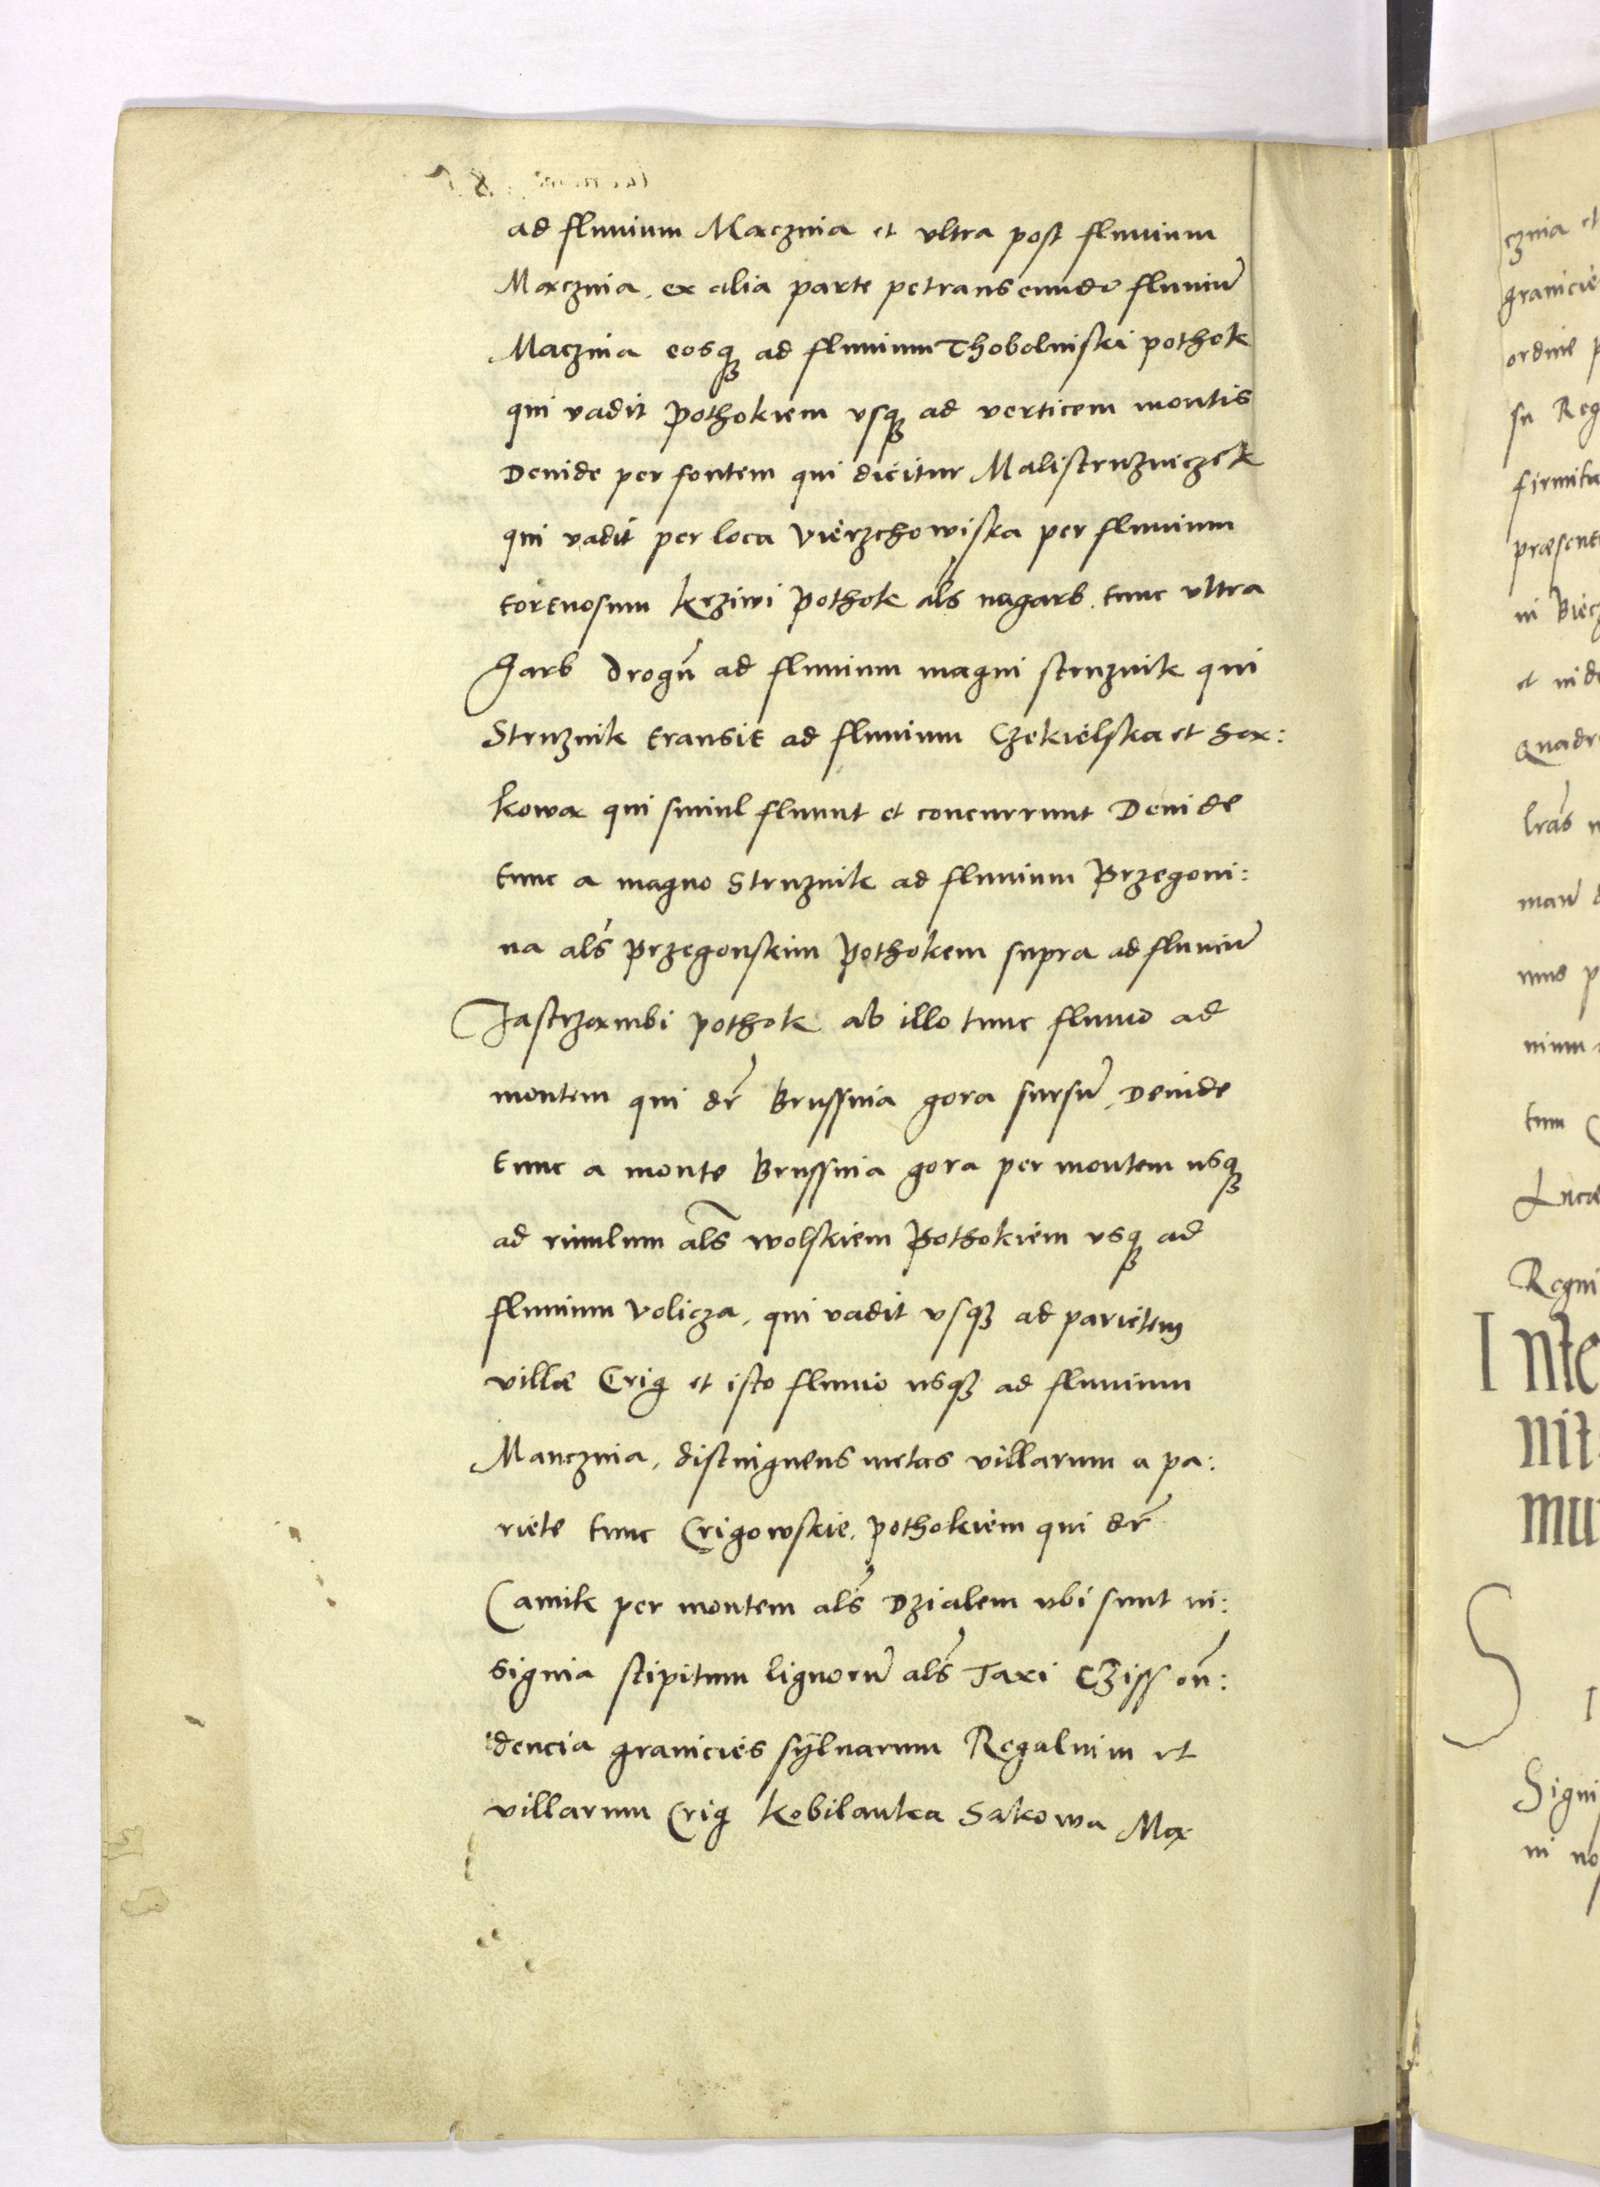 ad fluuium Macznia et vltra post fluuium
Macznia, ex alia parte petranseundo fluuiũ
Macznia eosqꝫ ad fluuium Thobolniski pothok
qui vadit Pothokiem vsqꝫ ad verticem montis
Deinde per fontem qui dicitur Malistruzniczek
qui vadit per loca Vierzchowiska per fluuium
tortuosum krziwi Pothok als nagarb. tunc vltra
Garb drogũ ad fluuium magni struznik qui
Struznik transit ad fluuium Czekielska et Sex:
kowa qui simul fluunt et concurrunt Deinde
tunc a magno Struznik ad fluuium Przegoni:
na als Przegonskim Pothokem supra ad fluuiũ
Jastrzambi pothok ab illo tunc fluuio ad
montem qui dr̃ Brussnia gora sursũ, Deinde
tunc a monte Brussnia gora per montem usqꝫ
ad riuulum als wolskiem Pothokiem vsqꝫ ad
fluuium Volicza, qui vadit vsqꝫ ad parietem
villæ Crig et isto fluuio usqꝫ ad fluuium
Mancznia, distinguens metas villarum a pa:
riete tunc Crigowskie, pothokiem qui dr̃
Camik per montem als Dzialem vbi sunt in:
signia stipitum lignorũ als Taxi Cziss oñ:
dencia granicies syluarum Regalium et
villarum Crig Kobilanka Sakowa Ma
cznia et
granicie
ordine p
su Reg
firmita
præsent
ni Biecz
et nid
Quadr
lras
man
nium
tum
Lucæ
Regni
Inte
nit
mu
S
Signi
ni no